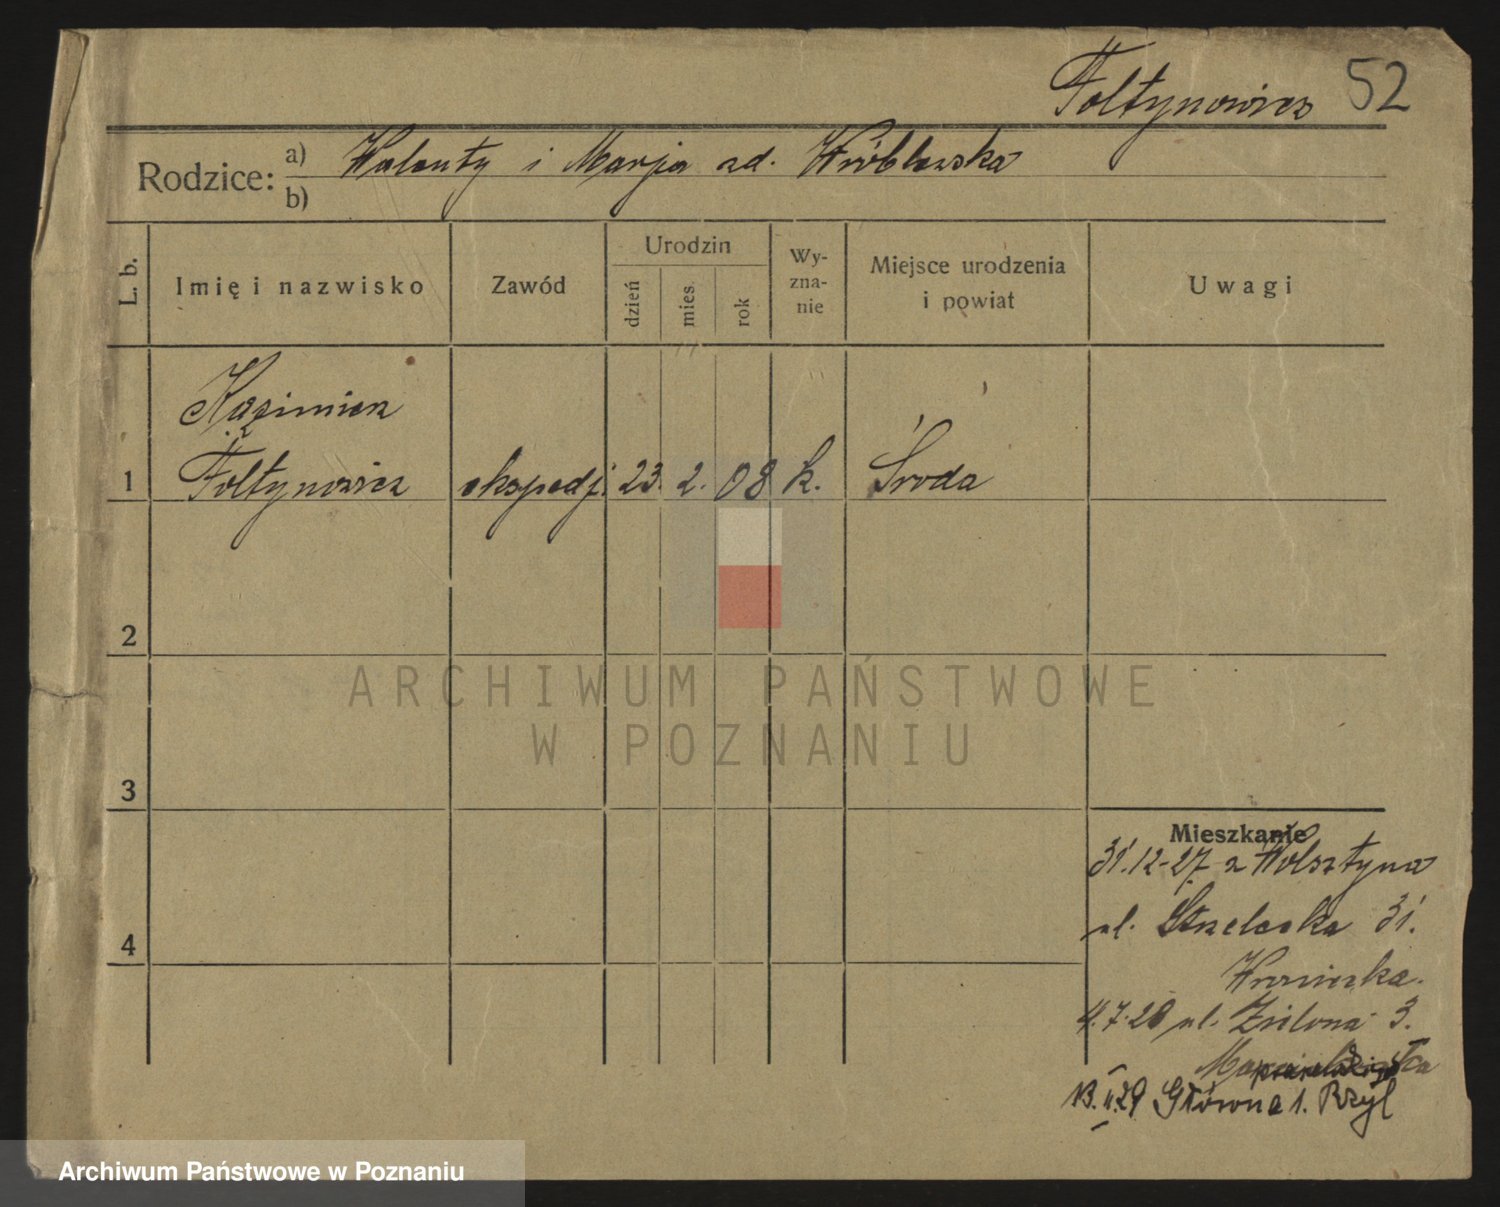 Fołtynowicz 52
Rodzice: a) Walenty i Marja zd. Wróblewska
b)
L. b. Imię i nazwisko Zawód Urodzin dzień mies. rok Wy-zna-nie Miejsce urodzenia i powiat Uwagi
Kazimierz
1 Fołtynowicz ekspedj. 23. 2. 08 k. Środa
2
ARCHIWUM PAŃSTWOWE
W POZNANIU
3
Mieszkanie
31.12-27 z Wolsztyna
4 ul. Strzelecka 31.
4.7.28 ul. Zielona 3.
13. 29 Główna 1. Bzyl
Archiwum Państwowe w Poznaniu